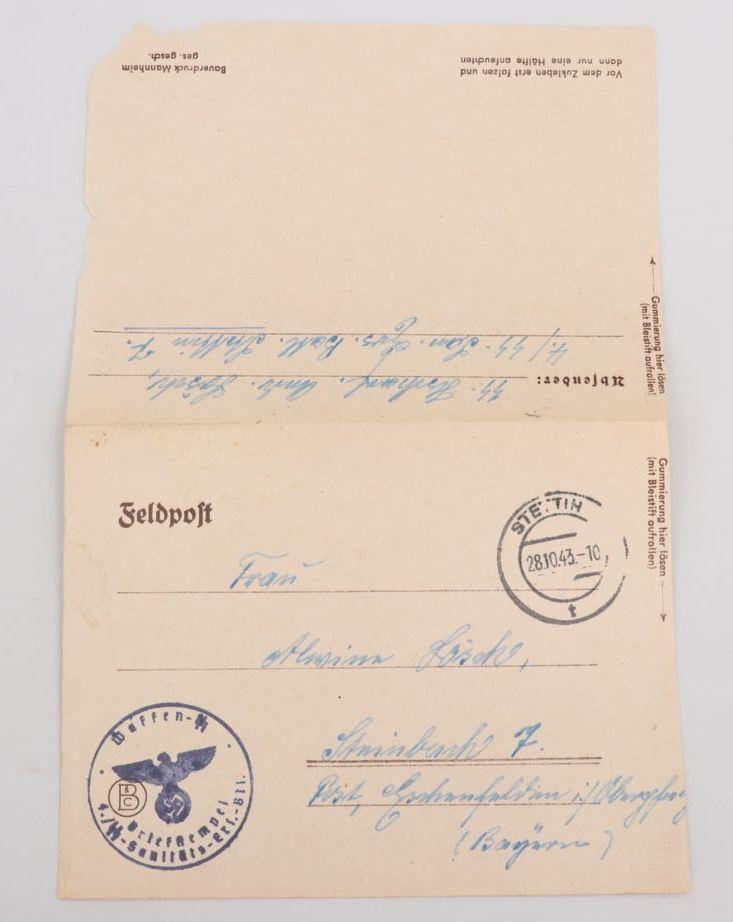 Bauerdruck Mannheim
ges. gesch.
Vor dem Zukleben erst falzen und
dann nur eine Hälfte anfeuchten
Absender: SS- Lösch,
4./SS- San. Ers. Batl. Stettin
Gummierung hier lösen
(mit Bleistift aufrollen)
Gummierung hier lösen
(mit Bleistift aufrollen)
Feldpost
STETTIN
28.10.43.-10
t
Frau
Alwine Lösch,
Steinbach 7.
Post, Eschenfelden i./Oberpfalz
(Bayern)
Waffen-SS
Briefstempel
4./SS-Sanitäts-Ers.-Btl.